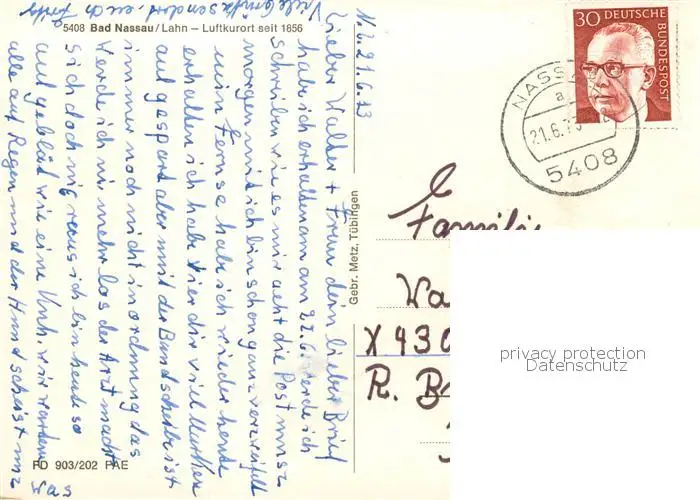 5408 Bad Nassau/Lahn – Luftkurort seit 1856
N. d. 21.6.73
Lieber Walter + Frau dein lieber Brief
habe ich erhalten am 22.6 werde ich
schreiben wie es mir geht die Post muss
morgen mit ich bin schon ganz verzweifelt
mein Fernse hab ich wieder heute
erhalten ich habe hier dir viel
auf gespart aber mit der Bandscheibe ist
immer noch nicht in ordnung das
werde ich nie mehr los der Arzt macht
sich doch nig ich bin heute so
auf gebläht wie eine wir warten
alle auf Regen und der Hund scheist uns
was
Viele Grüsse sendet euch
FD 903/202 PAE
Gebr. Metz, Tübingen
30 DEUTSCHE BUNDESPOST
NASS
a
21.6.73
5408
Familie
Wa
X 430
R. B
privacy protection
Datenschutz